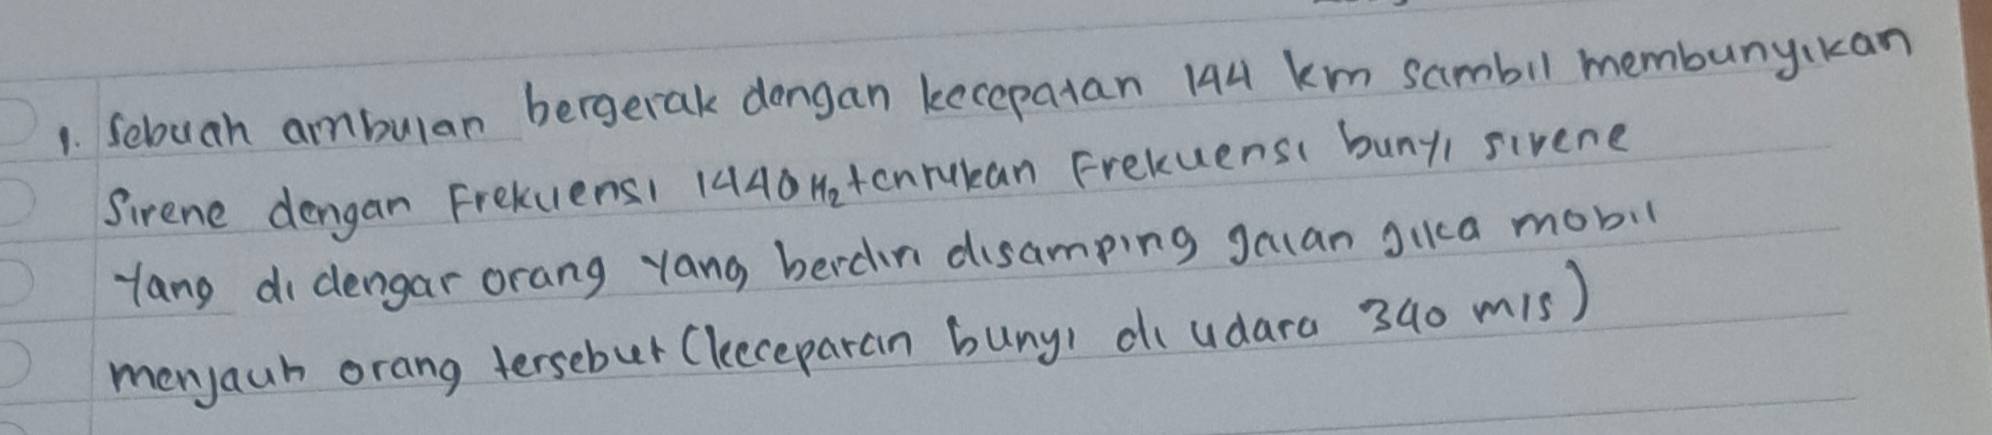 1. Sebuah ambulan bergerak dengan kecepatan 144 km sambil membunyikan
Sirene dengan Frekuensi 1440 Hz tentukan Frekuensi bunyi sirene
Yang di dengar orang yang berdiri disamping jalan jika mobil
menjauh orang tersebut (kecepatan bunyi di udara 340 m/s)